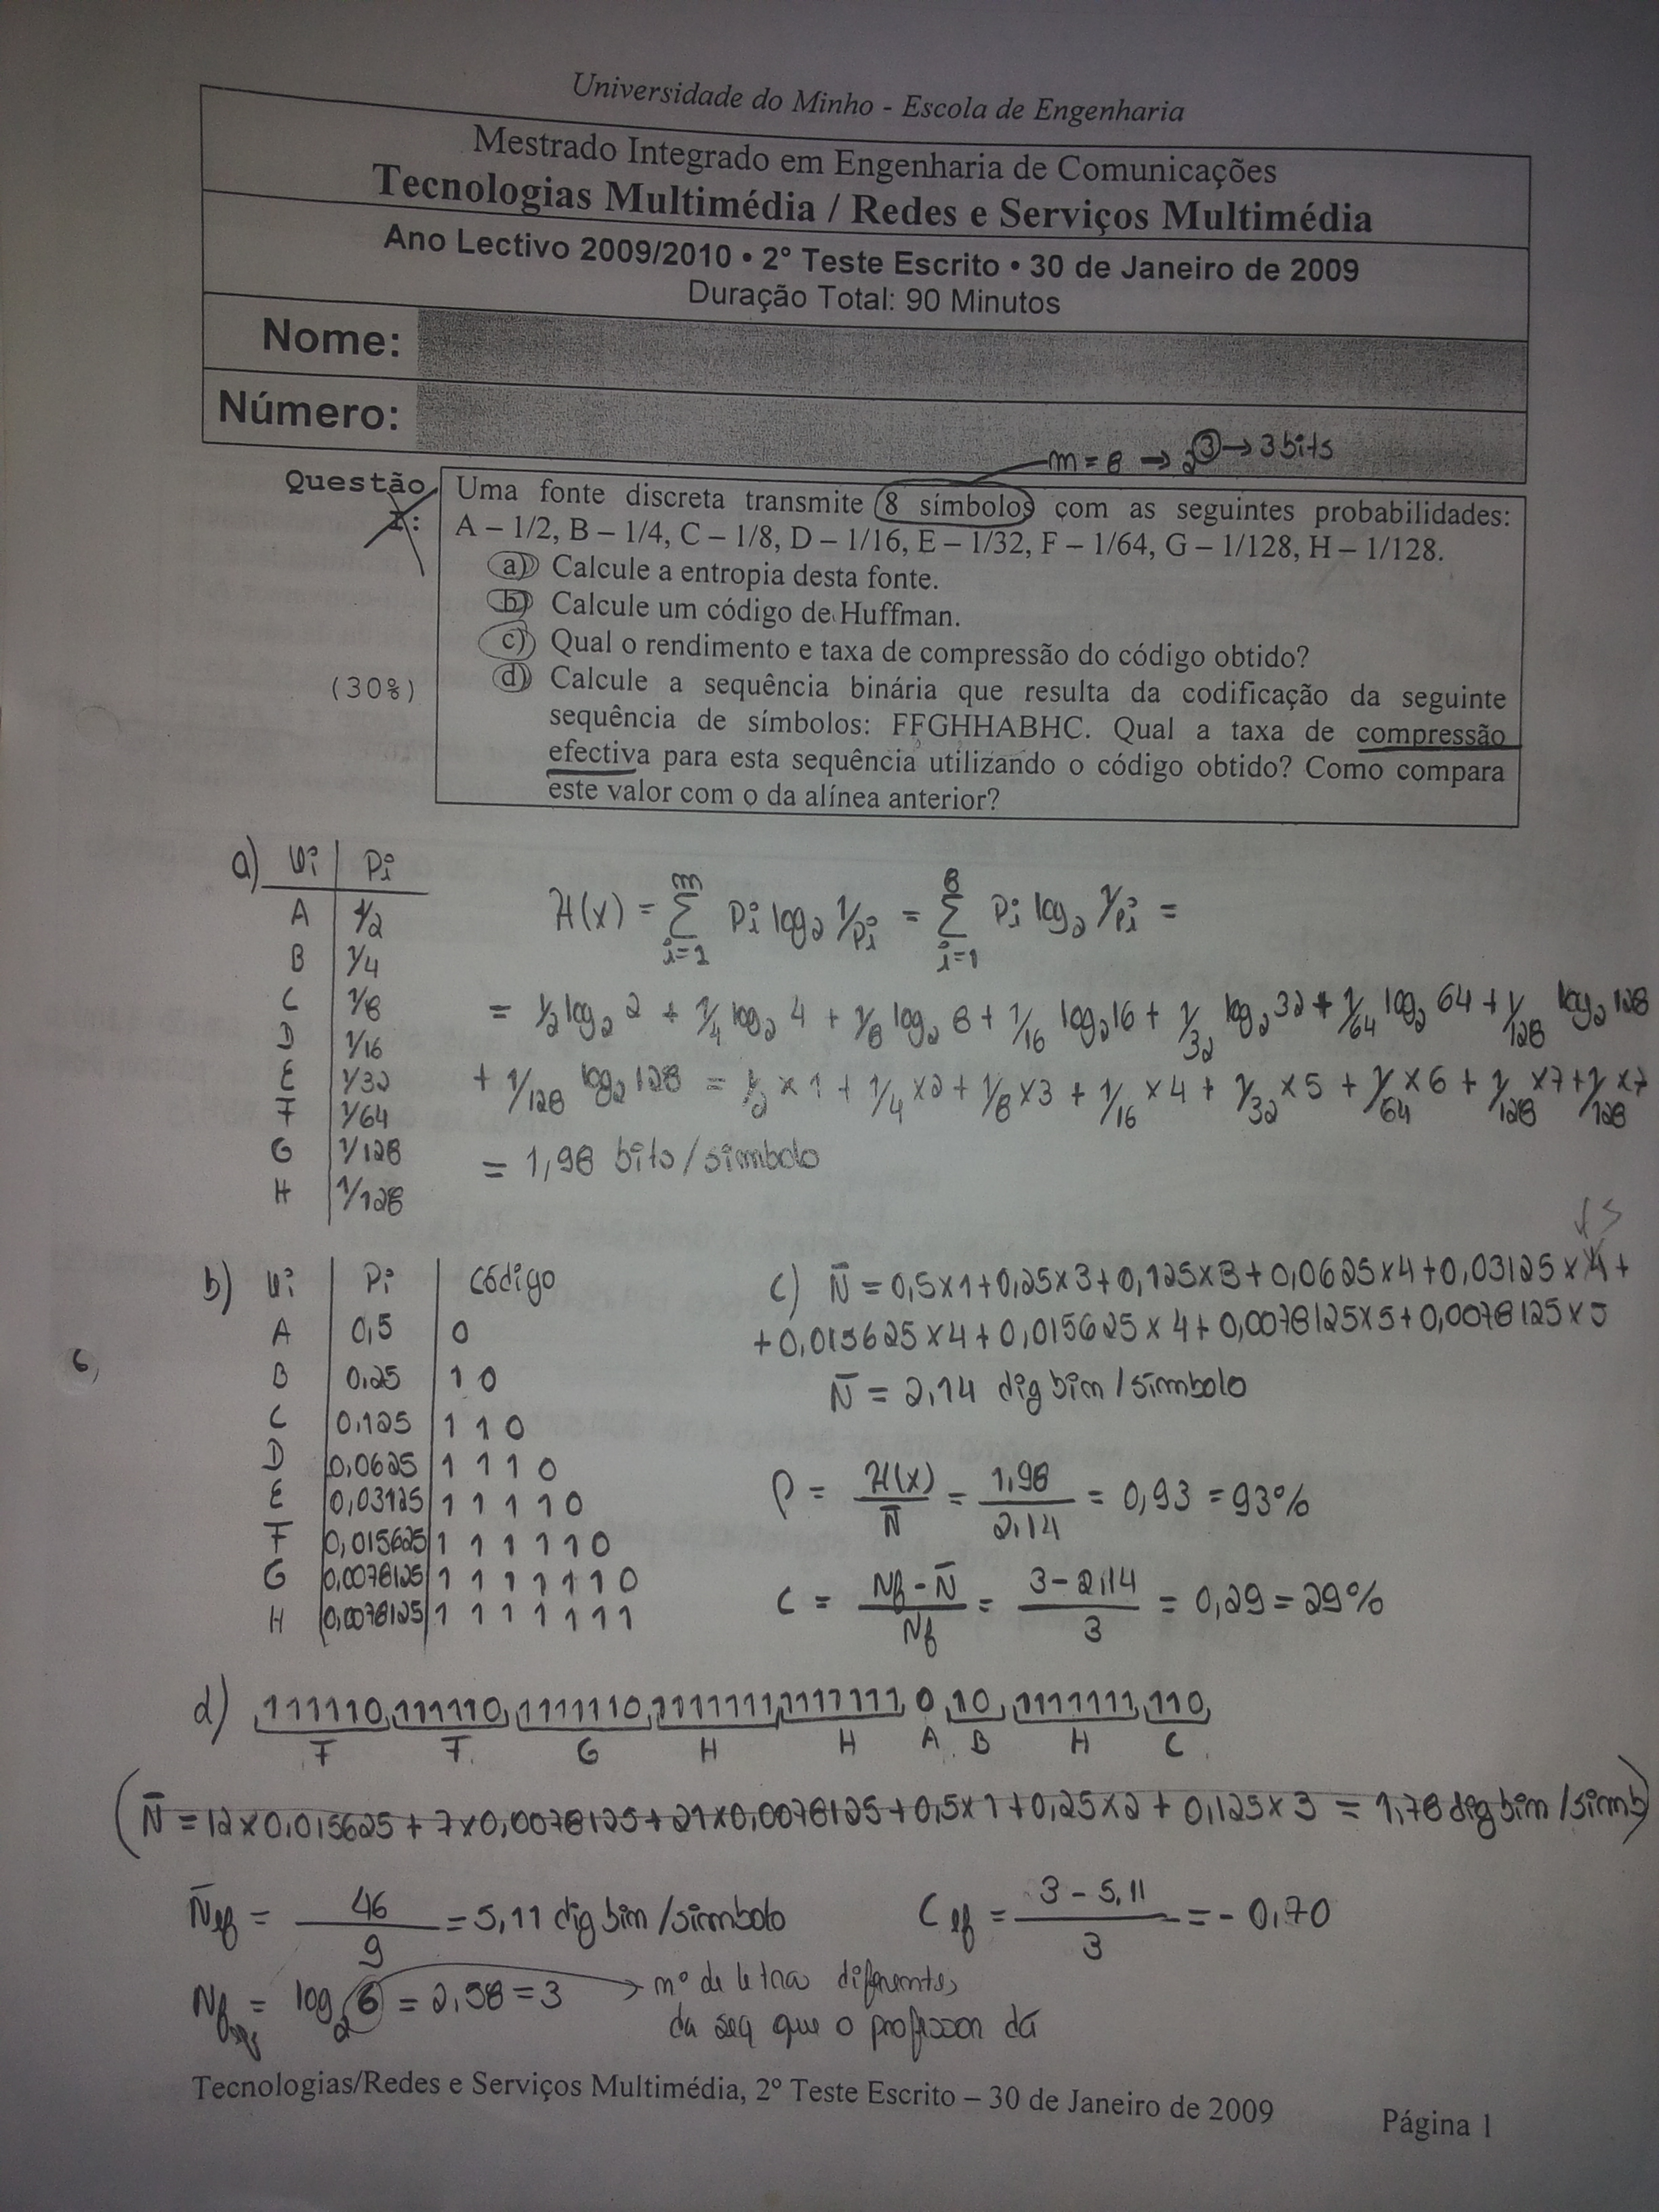 Universidade do Minho - Escola de Engenharia
Mestrado Integrado em Engenharia de Comunicações
Tecnologias Multimédia / Redes e Serviços Multimédia
Ano Lectivo 2009/2010 • 2º Teste Escrito • 30 de Janeiro de 2009
Duração Total: 90 Minutos
Nome:
Número:
m = 8 → 2³ → 3 bits
Questão
1:
(30%)
Uma fonte discreta transmite 8 símbolos com as seguintes probabilidades:
A – 1/2, B – 1/4, C – 1/8, D – 1/16, E – 1/32, F – 1/64, G – 1/128, H – 1/128.
a) Calcule a entropia desta fonte.
b) Calcule um código de Huffman.
c) Qual o rendimento e taxa de compressão do código obtido?
d) Calcule a sequência binária que resulta da codificação da seguinte
sequência de símbolos: FFGHHABHC. Qual a taxa de compressão
efectiva para esta sequência utilizando o código obtido? Como compara
este valor com o da alínea anterior?
a) Ui | Pi
A | 1/2
B | 1/4
C | 1/8
D | 1/16
E | 1/32
F | 1/64
G | 1/128
H | 1/128
H(x) = Σ m i=1 Pi log2 1/Pi = Σ 8 i=1 Pi log2 1/Pi =
= 1/2 log2 2 + 1/4 log2 4 + 1/8 log2 8 + 1/16 log2 16 + 1/32 log2 32 + 1/64 log2 64 + 1/128 log2 128
+ 1/128 log2 128 = 1/2 × 1 + 1/4 × 2 + 1/8 × 3 + 1/16 × 4 + 1/32 × 5 + 1/64 × 6 + 1/128 × 7 + 1/128 × 7
= 1,98 bits/simbolo
b) Ui | Pi | Código
A | 0,5 | 0
B | 0,25 | 1 0
C | 0,125 | 1 1 0
D | 0,0625 | 1 1 1 0
E | 0,03125 | 1 1 1 1 0
F | 0,015625 | 1 1 1 1 1 0
G | 0,0078125 | 1 1 1 1 1 1 0
H | 0,0078125 | 1 1 1 1 1 1 1
6)
c) N̄ = 0,5×1+0,25×3+0,125×3+0,0625×4+0,03125×4+
+0,015625×4+0,015625×4+0,0078125×5+0,0078125×5
N̄ = 2,14 dig bin/simbolo
ρ = H(x)/N̄ = 1,98/2,14 = 0,93 = 93%
C = (Nf - N̄)/Nf = (3 - 2,14)/3 = 0,29 = 29%
d) 111110 111110 1111110 1111111 1111111 0 10 1111111 110
F F G H H A B H C
(N̄ = 12×0,015625 + 7×0,0078125 + 21×0,0078125 + 0,5×1 + 0,25×2 + 0,125×3 = 1,78 dig bin/simb)
N̄ef = 46/9 = 5,11 dig bin/simbolo
Cef = (3 - 5,11)/3 = - 0,70
Nf = log2 6 = 2,58 = 3 → nº de letras diferentes
da seq que o professor dá
Tecnologias/Redes e Serviços Multimédia, 2º Teste Escrito – 30 de Janeiro de 2009
Página 1